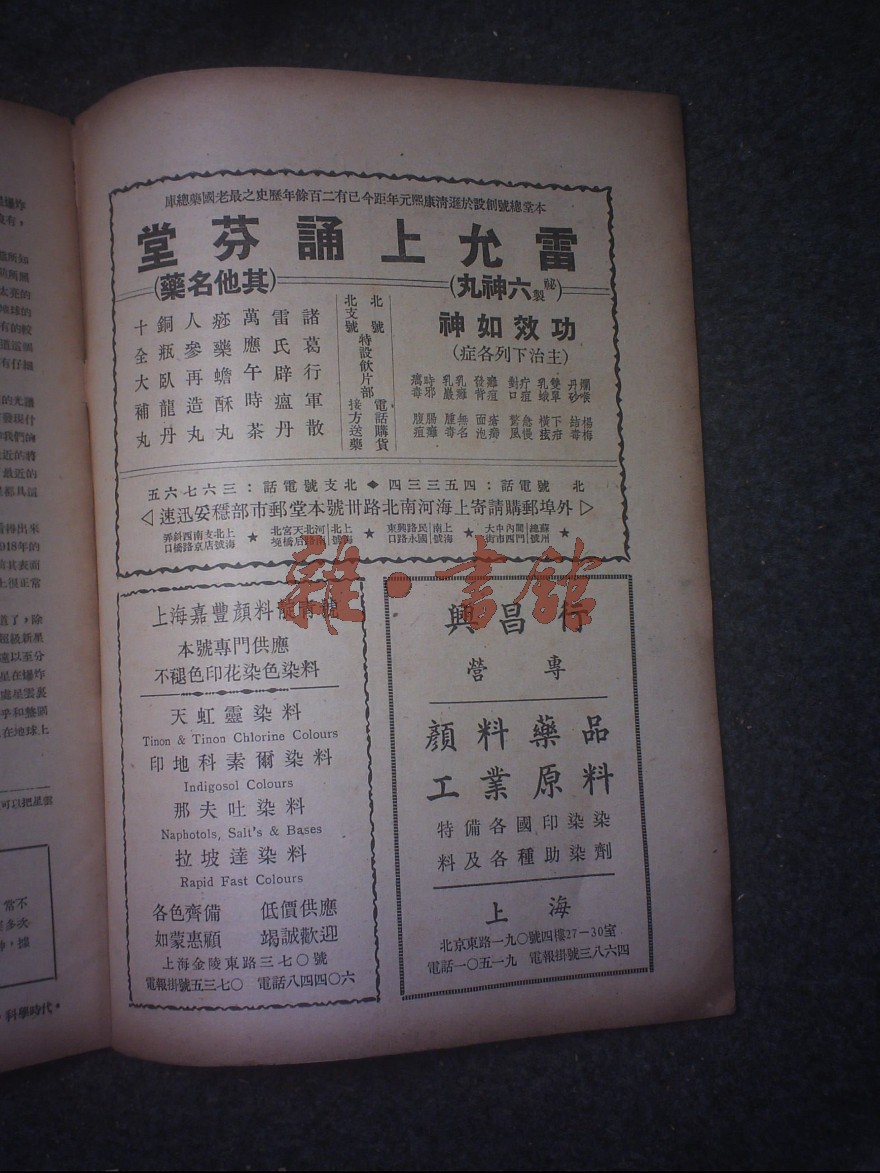 本堂總號創設於遜清康熙元年距今已有二百餘年歷史之最老國藥總庫
雷允上誦芬堂
(祕製六神丸)
功效如神
(主治下列各症)
爛喉丹砂
雙單乳蛾
疔疽對口
癰疽發背
乳癰乳巖
時邪癘毒
楊梅結毒
下疳橫痃
急慢驚風
無名腫毒
腸癰腹疽
北號
北支號
特設飲片部
電話購貨
接方送藥
(其他名藥)
諸葛行軍散
雷氏辟瘟丹
萬應午時茶
痧藥蟾酥丸
人參再造丸
銅瓶臥龍丹
十全大補丸
北號電話：四五三三四◆北支號電話：三六七六五
▷外埠郵購請寄上海河南北路卅號本堂郵市部穩妥迅速◁
上海嘉豐顏料靛青號
本號專門供應
不褪色印花染色染料
天虹靈染料
Tinon & Tinon Chlorine Colours
印地科素爾染料
Indigosol Colours
那夫吐染料
Naphotols, Salt's & Bases
拉坡達染料
Rapid Fast Colours
各色齊備 低價供應
如蒙惠顧 竭誠歡迎
上海金陵東路三七〇號
電報掛號五三七〇 電話八四四〇六
興昌行
專營
顏料藥品
工業原料
特備各國印染染
料及各種助染劑
上海
北京東路一九〇號四樓27—30室
電話一〇五一九 電報掛號三八六四
雜·書館